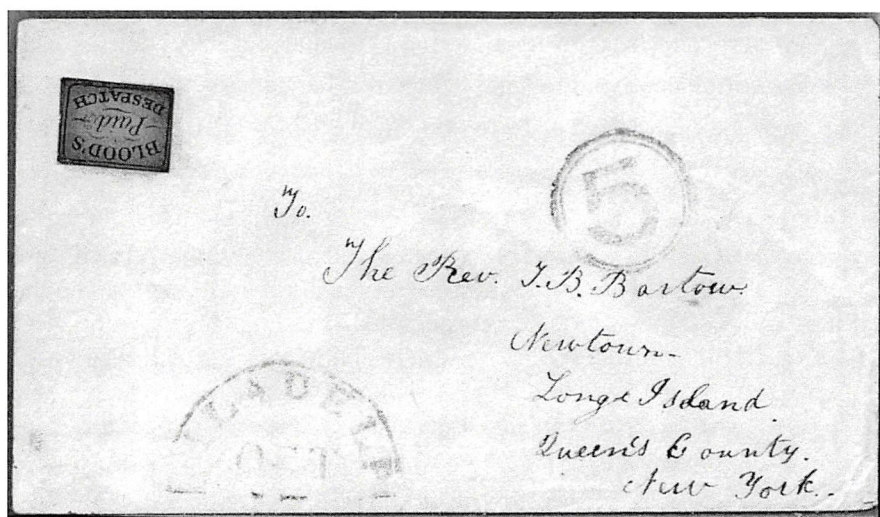 BLOOD'S
Paid
DESPATCH
5
To.
The Rev. T. B. Bartow.
Newtown-
Long Island.
Queen's County.
New York.
LADELP